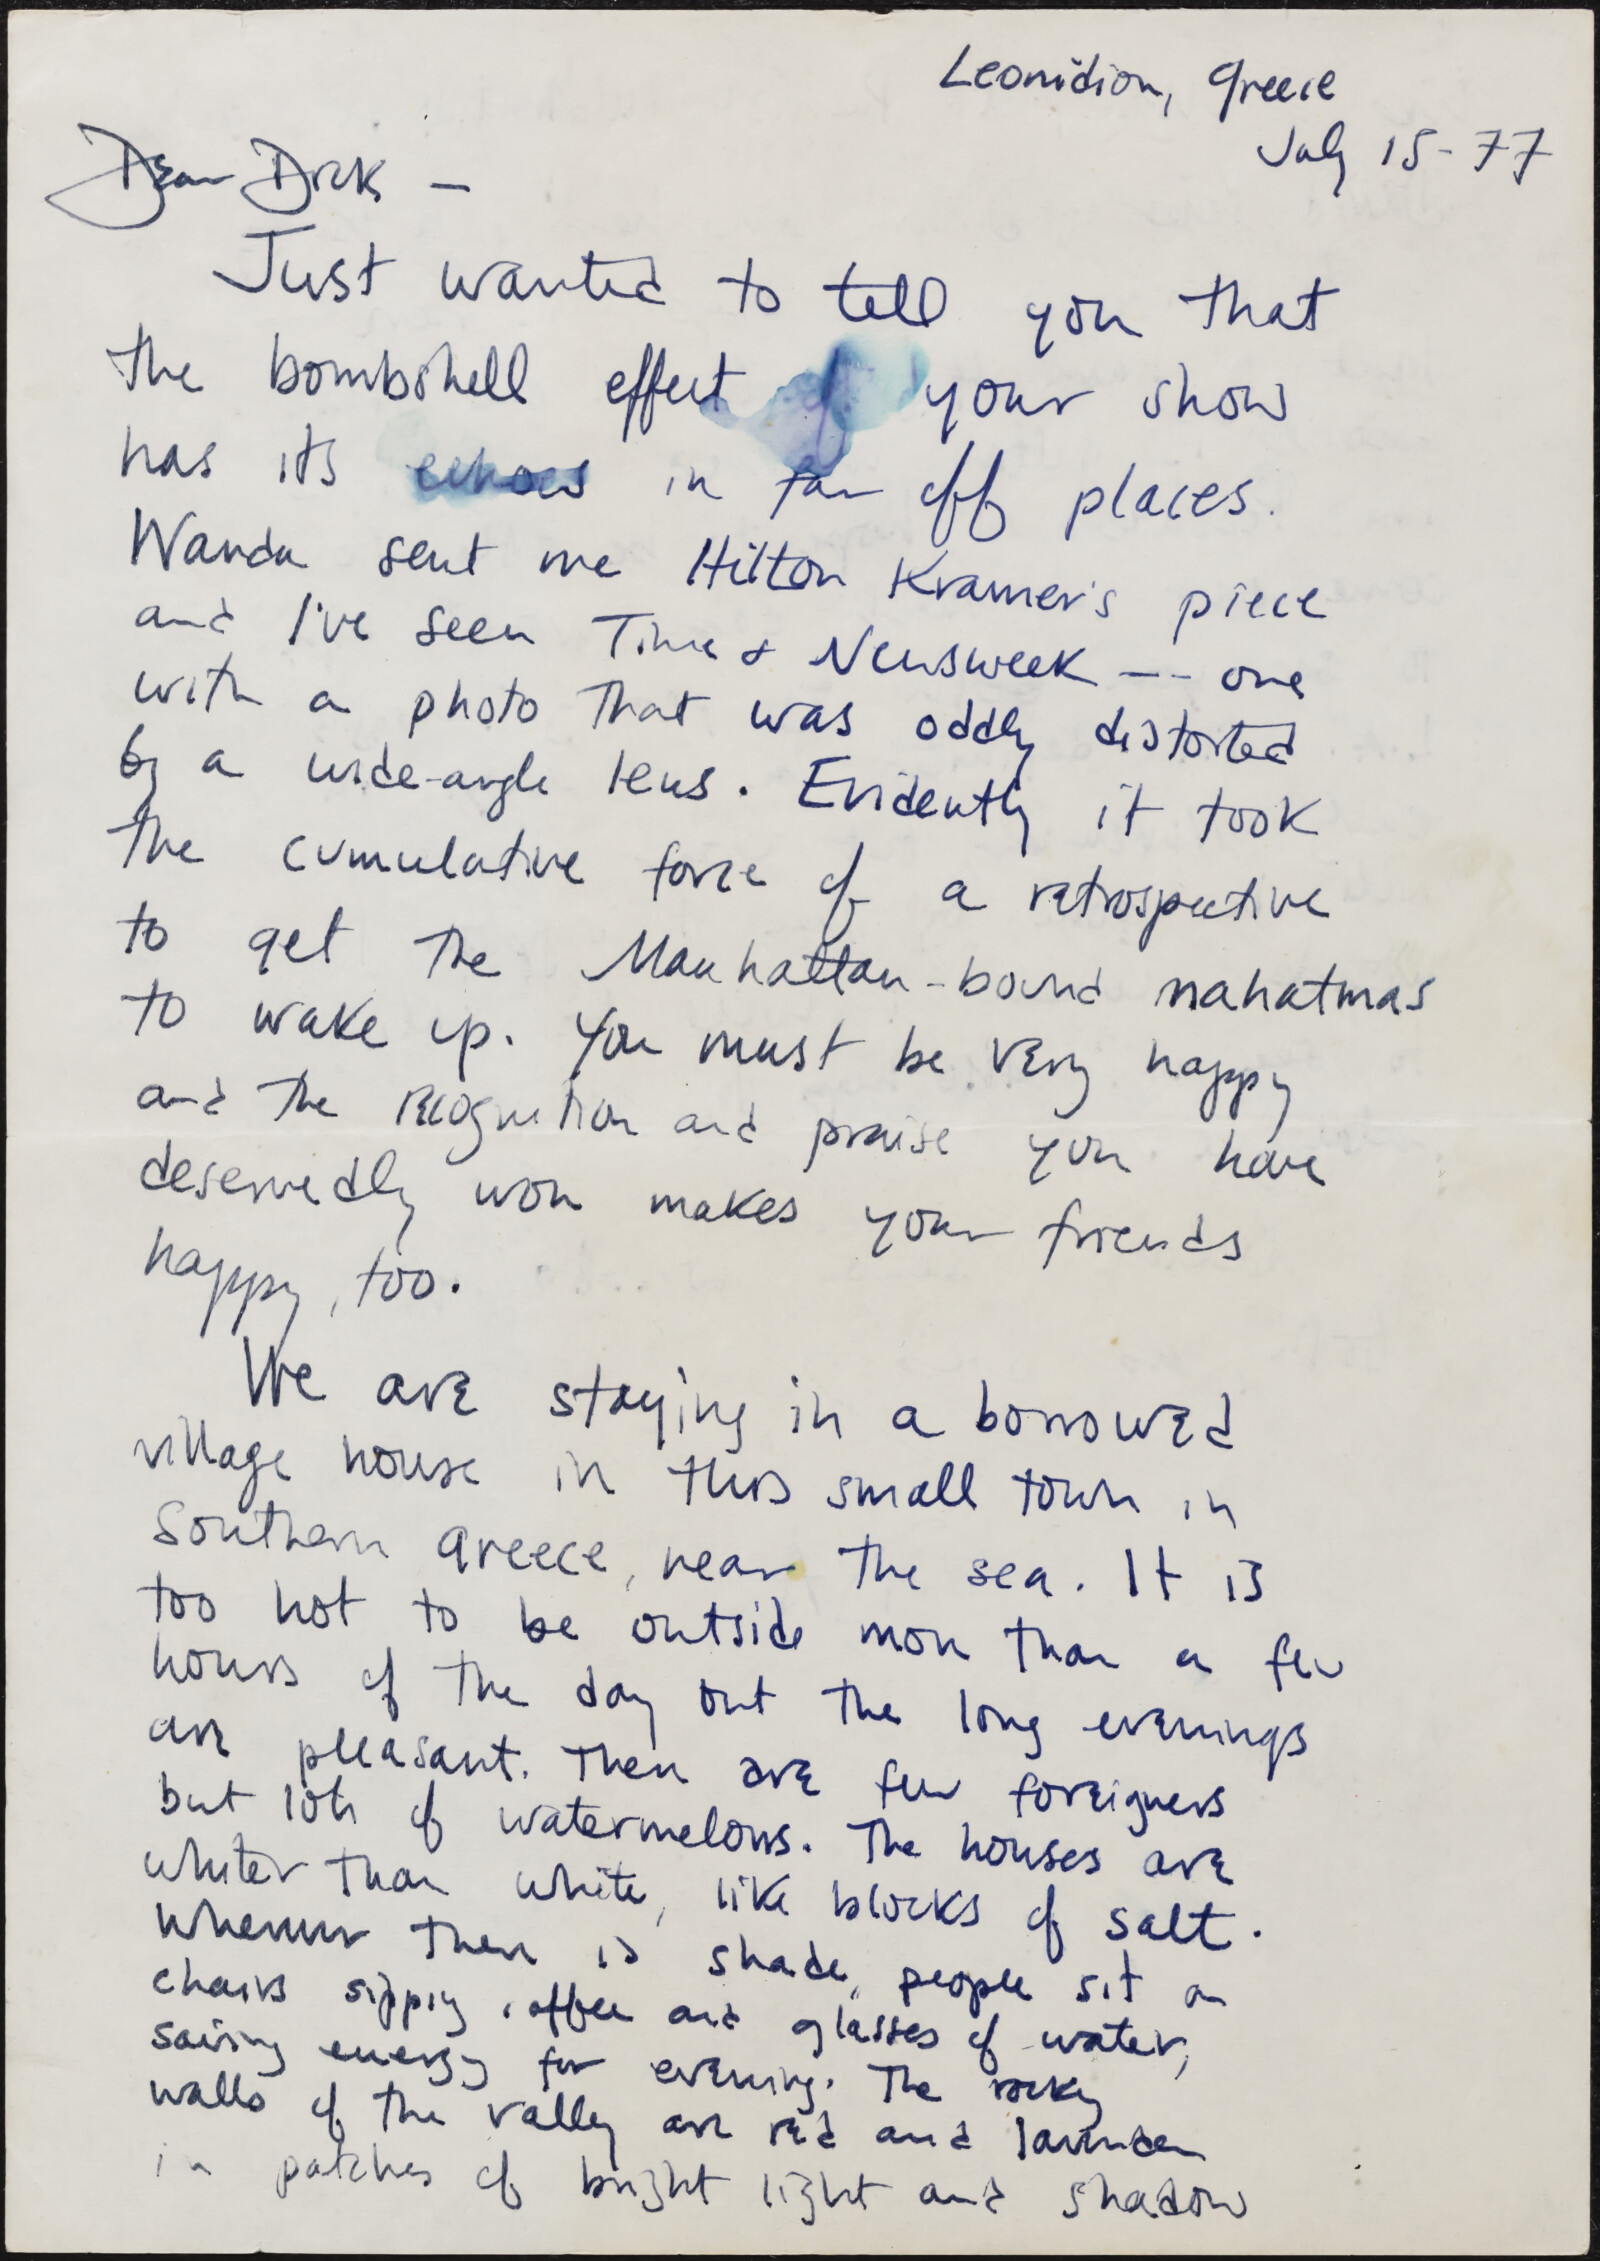 Leonidion, Greece
July 15-77
Dear Dick —
Just wanted to tell you that
the bombshell effect of your show
has its echoes in far off places.
Wanda sent me Hilton Kramer's piece
and I've seen Time & Newsweek -- one
with a photo that was oddly distorted
by a wide-angle lens. Evidently it took
the cumulative force of a retrospective
to get the Manhattan-bound mahatmas
to wake up. You must be very happy
and the recognition and praise you have
deservedly won makes your friends
happy, too.
We are staying in a borrowed
village house in this small town in
Southern Greece, near the sea. It is
too hot to be outside more than a few
hours of the day but the long evenings
are pleasant. There are few foreigners
but lots of watermelons. The houses are
whiter than white, like blocks of salt.
Wherever there is shade, people sit on
chairs sipping coffee and glasses of water,
saving energy for evening. The rocky
walls of the valley are red and lavender
in patches of bright light and shadow